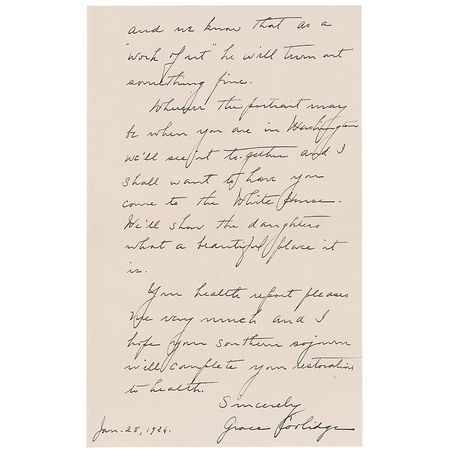 and we know that as a
"work of art" he will turn out
something fine.
Wherever the portrait may
be when you are in Washington
we'll see it together and I
shall want to have you
come to the White House.
We'll show the daughters
what a beautiful place it
is.
Your health report pleases
me very much and I
hope your southern sojourn
will complete your restoration
to health.
Sincerely
Grace Coolidge
Jan. 28, 1926.